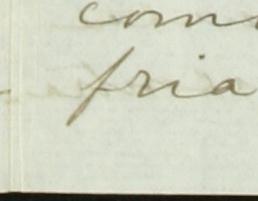 com
fria